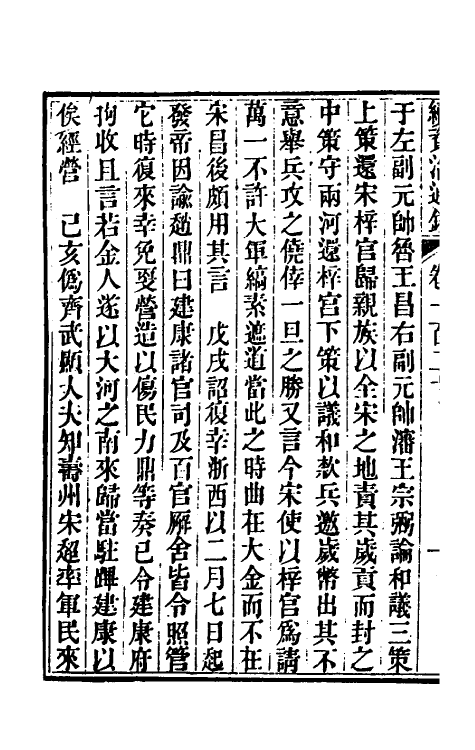 續資治通鑑 卷一百二十 一
于左副元帥魯王昌右副元帥瀋王宗弼論和議三策
上策還宋梓宮歸親族以全宋之地責其歲貢而封之
中策守兩河還梓宮下策以議和款兵邀歲幣出其不
意舉兵攻之僥倖一旦之勝又言今宋使以梓宮爲請
萬一不許大軍縞素遮道當此之時曲在大金而不在
宋昌後頗用其言　戊戌詔復幸浙西以二月七日起
發帝因諭趙鼎曰建康諸官司及百官廨舍皆令照管
它時復來幸免更營造以傷民力鼎等奏已令建康府
拘收且言若金人遂以大河之南來歸當駐蹕建康以
俟經營　己亥僞齊武顯大夫知壽州宋超率軍民來